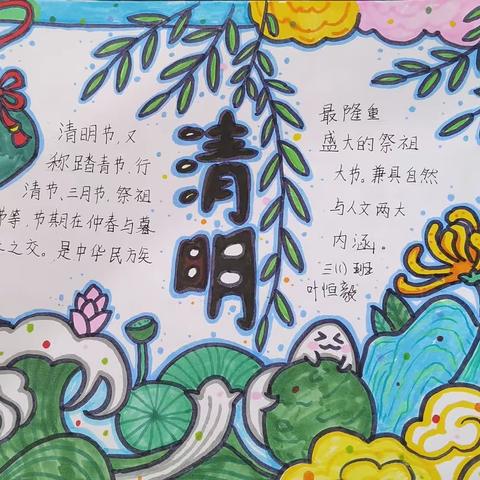 清明
清明节,又
称踏青节、行
清节、三月节、祭祖
节等,节期在仲春与暮
之交。是中华民方矣
最隆重
盛大的祭祖
大节。兼具自然
与人文两大
内涵。
三(1)班
叶恒毅